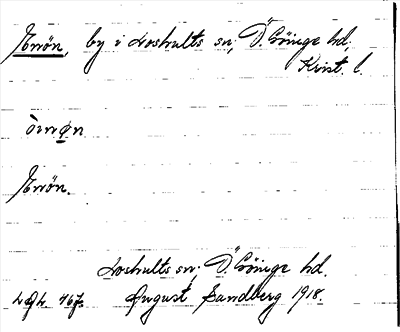 Ernön, by i Loshults sn, Ö. Göinge hd,
Krist. l.
òrnøn
Ernön.
Loshults sn; Ö. Göinge hd.
August Sandberg 1918.